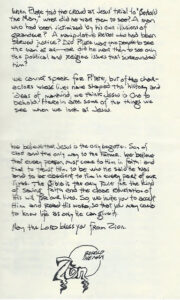 when Pilate told the crowd at Jesus' trial to "Behold
the Man," what did he want them to see? A man
who had been victimized by his own illusions of
grandeur? A manipulative rebel who had been
served justice? Did Pilate want the people to see
the man at all— or did he want them to see only
the political and religious issues that surrounded
him?
we cannot speak for Pilate, but of the char-
acters whose lives have shaped the history and
ideas of mankind we think Jesus is One to
behold. Here are some of the things we
see when we look at Jesus.
We believe that Jesus is the only begotten Son of
God and the only way to the Father. We believe
that every person must come to Him in faith and
that to trust Him to be who he said he was
and to be obedient to Him in every part of our
lives. The Bible is the only rule for the
of faith and the close
of His will for our lives. So we invite you to accept
Him and read His word, so that you may come
to know life as only He can give it.
May the Lord bless you from Zion.
BEHOLD
THE MAN
Zion